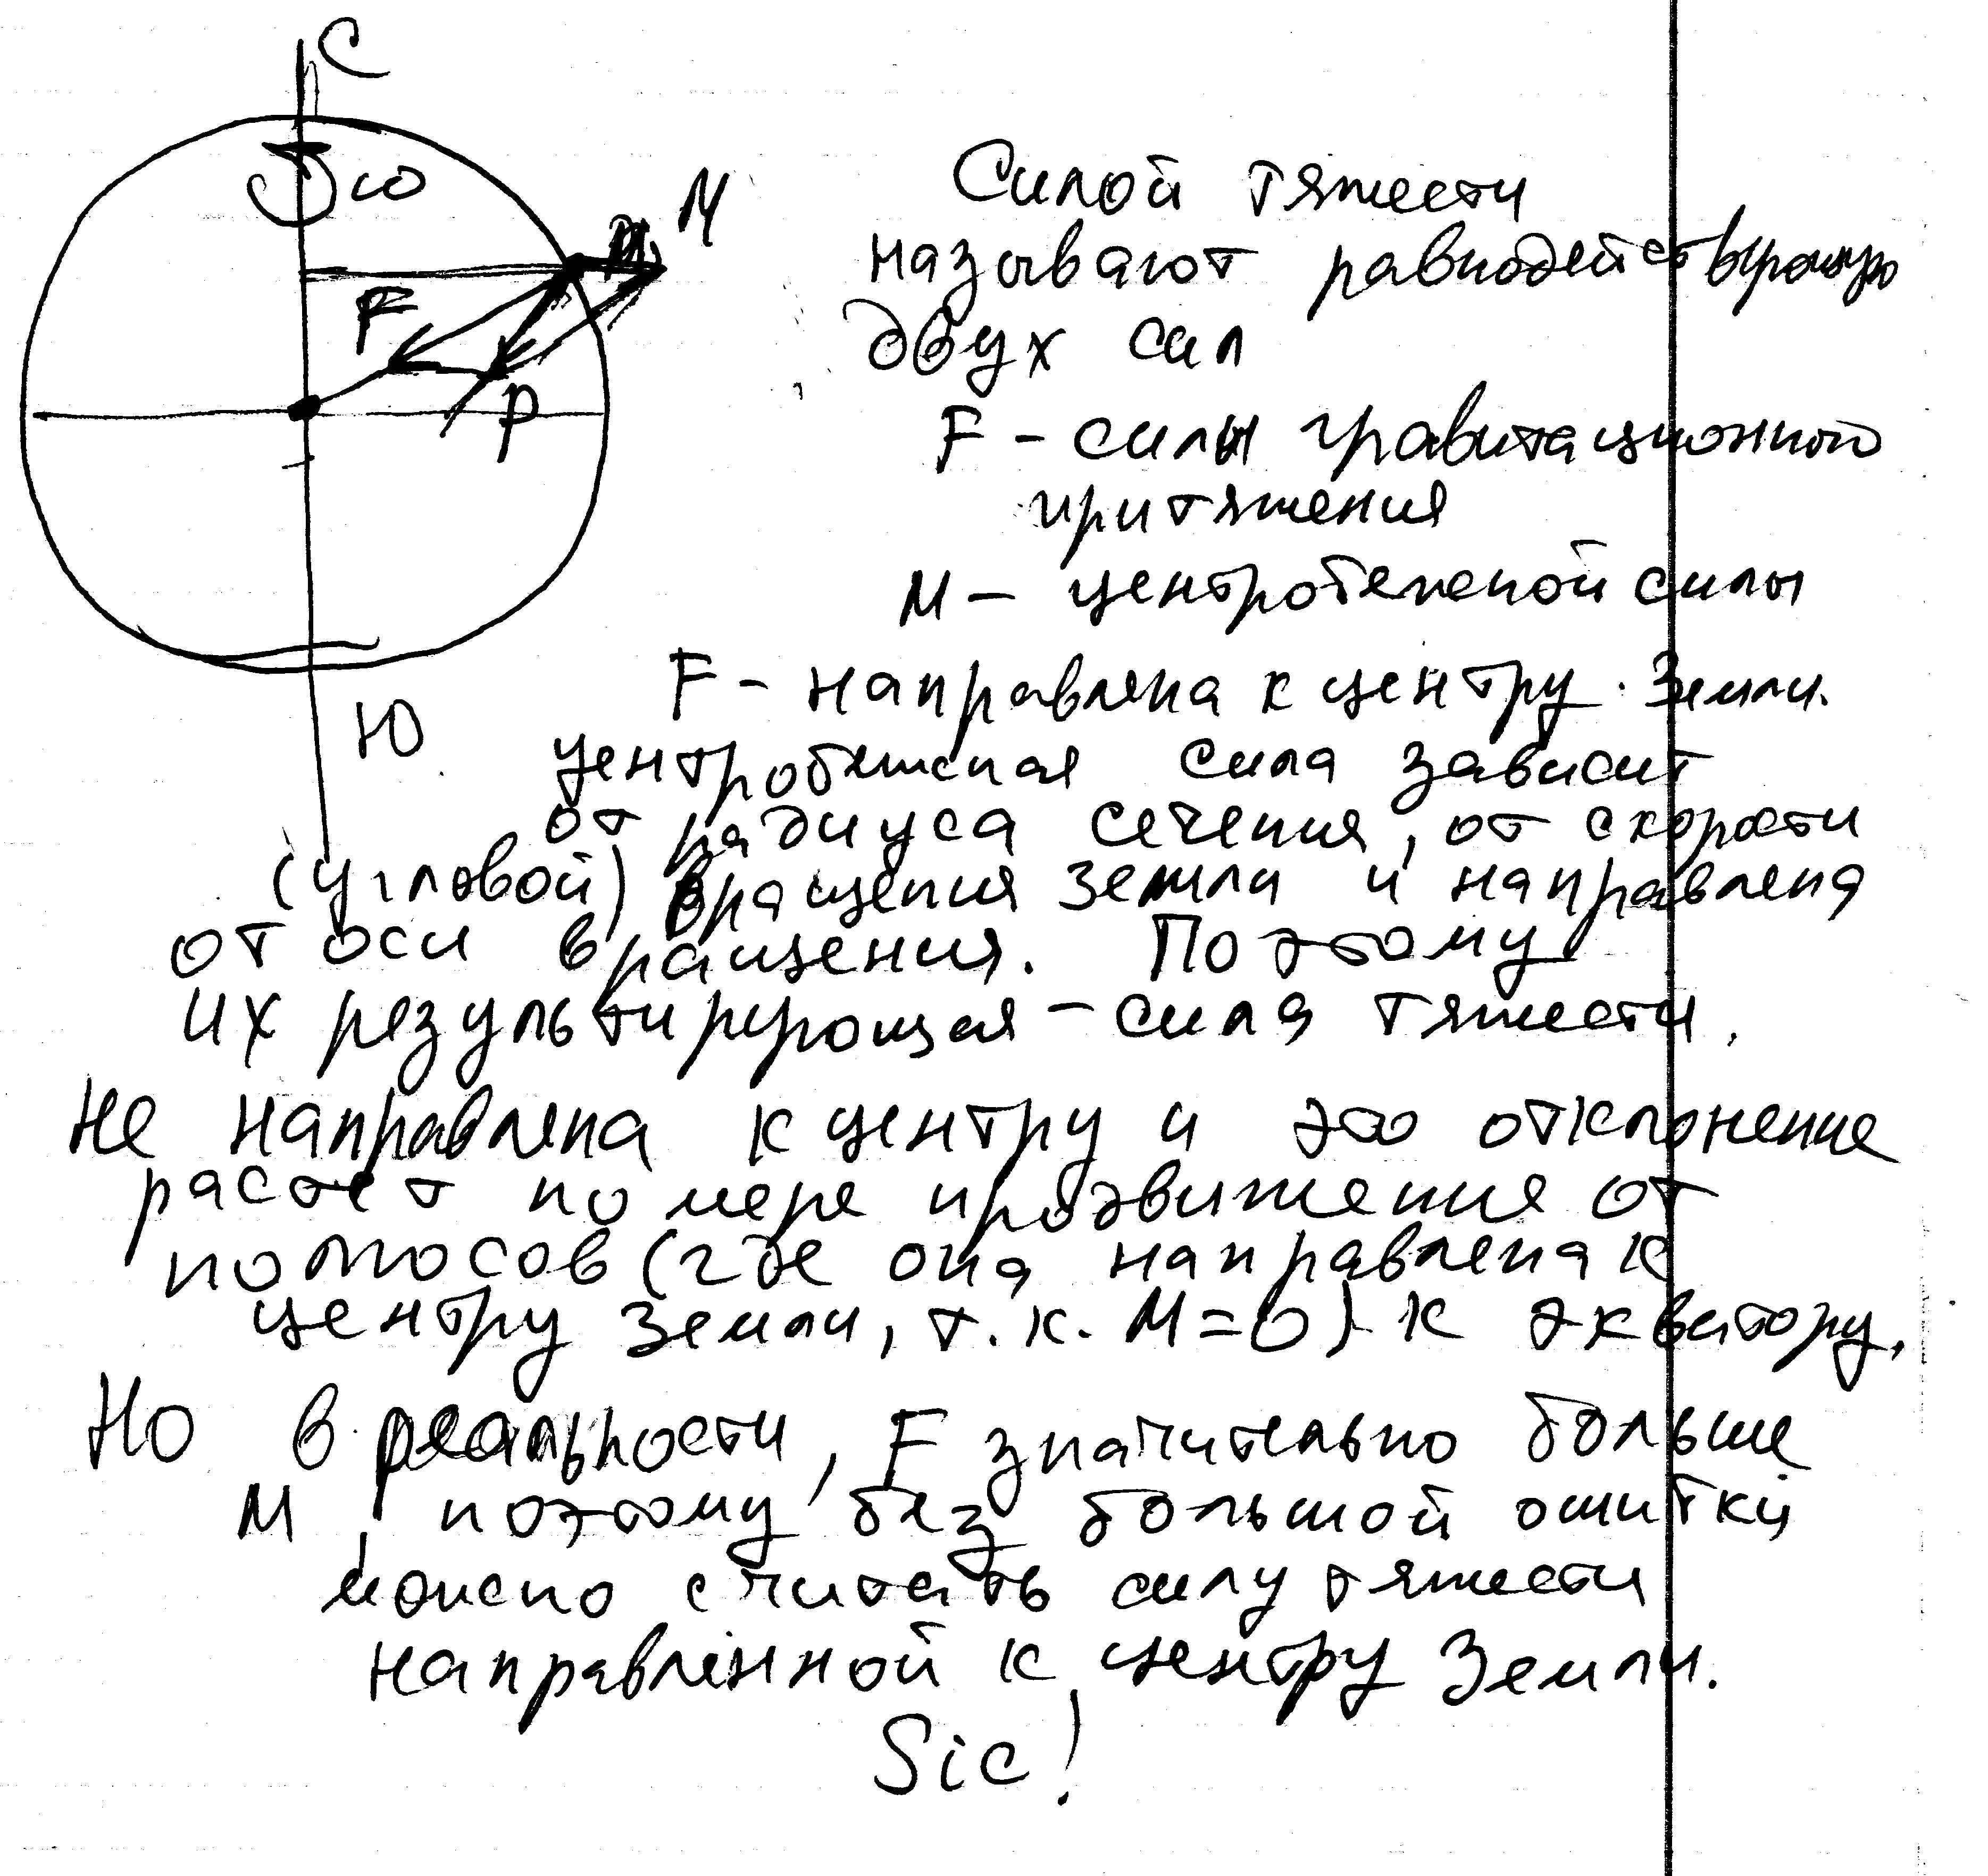 С
ω
М
F
P
Ю
Силой тяжести
называют равнодействующую
двух сил
F - силы гравитационного
притяжения
М - центробежной силы
F - направлена к центру Земли.
центробежная сила зависит
от радиуса сечения, от скорости
(угловой) вращения Земли и направлена
от оси вращения. Поэтому
их результирующая - сила тяжести
не направлена к центру и это отклонение
растет по мере продвижения от
полюсов (где она направлена к
центру Земли, т.к. М=0) к экватору.
Но в реальности, F значительно больше
М, поэтому без большой ошибки
можно считать силу тяжести
направленной к центру Земли.
Sic!